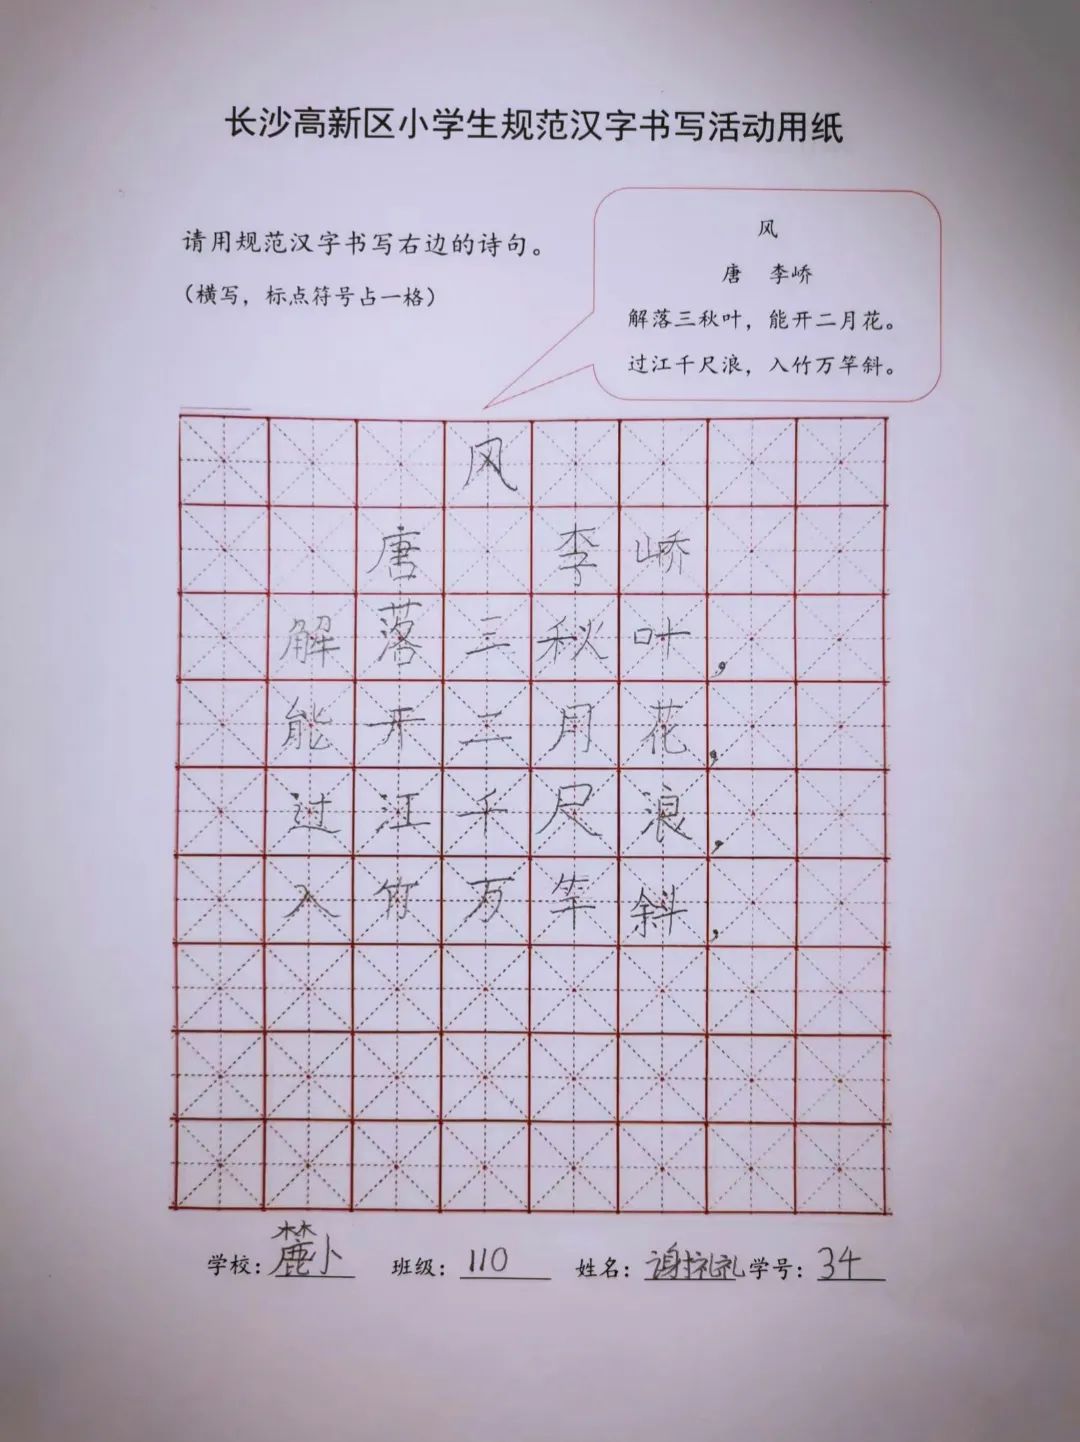 长沙高新区小学生规范汉字书写活动用纸
请用规范汉字书写右边的诗句。
（横写，标点符号占一格）
风
唐 李峤
解落三秋叶，能开二月花。
过江千尺浪，入竹万竿斜。
风
唐 李峤
解落三秋叶，
能开二月花，
过江千尺浪，
入竹万竿斜，
学校：麓小 班级：110 姓名：谢礼礼 学号：34